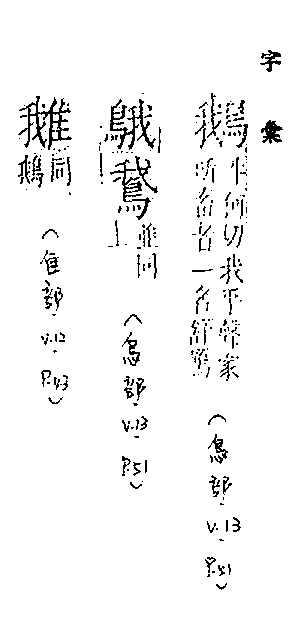 字彙
鵝 牛何切我平聲家
所畜者一名舒鴈
(鳥部 V.13 P.51)
䳘䳗 並同
上
(鳥部 V.13 P.51)
䧹同
鵝
(隹部 V.12 P.43)